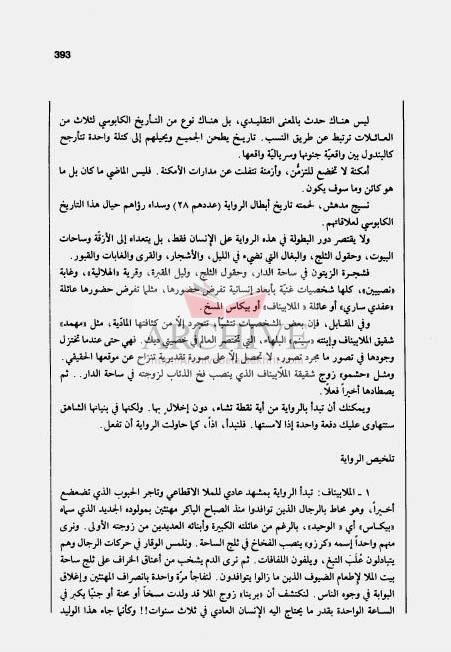 393
ليس هناك حدث بالمعنى التقليدي، بل هناك نوع من التأريخ الكابوسي لثلاث من
العائلات ترتبط عن طريق النسب. تاريخ يطحن الجميع ويحيلهم إلى كتلة واحدة تتأرجح
كالبندول بين واقعيّة جنونها وسرياليّة واقعها.
أمكنة لا تخضع للتزمُّن، وأزمنة تتفلت عن مدارات الأمكنة. فليس الماضي ما كان بل ما
هو كائن وما سوف يكون.
نسيج مدهش، لحمته تاريخ أبطال الرواية (عددهم ٢٨) وسداه رؤاهم حيال هذا التاريخ
الكابوسي لعلاقاتهم.
ولا يقتصر دور البطولة في هذه الرواية على الإنسان فقط، بل يتعداه إلى الأزقّة وساحات
البيوت، وحقول الثلج، والبغال التي تضيء في الليل، والأشجار، والقرى والغابات والقبور.
فشجرة الزيتون في ساحة الدار، وحقول الثلج، وليل المقبرة، وقرية «الهلالية»، وغابة
«نصيبين»، كلها شخصيات غنيّة بأبعاد إنسانية تفرض حضورها، مثلما تفرض حضورها عائلة
«عفدي ساري» أو عائلة «الملابيناف» أو بيكاس المسخ.
وفي المقابل، فإن بعض الشخصيات تتشيّأ، وتتجرد إلّا من كثافتها المادّية، مثل «مهمد»
شقيق الملابيناف وإبنته «سينم» البلهاء، التي تختصر العالم في خصيتي ديك. فهي حتى عندما تختزل
وجودها في تصور ما مجرد تصور، لا تحصل إلّا على صورة تقديرية تنزاح عن موقعها الحقيقي.
ومثل «حشمو» زوج شقيقة الملّابيناف الذي ينصب فخ الذئاب لزوجته في ساحة الدار.. ثم
يصطادها أخيراً فعلًا.
ويمكنك أن تبدأ بالرواية من أية نقطة تشاء، دون إخلال بها. ولكنها في بنيانها الشاهق
ستتهاوى عليك دفعة واحدة إذا لامستها. فلنبدأ، اذاً، كما حاولت الرواية أن تفعل.
تلخيص الرواية
١ ـ الملابيناف: تبدأ الرواية بمشهد عادي للملا الاقطاعي وتاجر الحبوب الذي تضعضع
أخيراً، وهو محاط بالرجال الذين توافدوا منذ الصباح الباكر مهنئين بمولوده الجديد الذي سماه
«بيكاس» أي «الوحيد»، بالرغم من عائلته الكبيرة وأبنائه العديدين من زوجته الأولى. ونرى
منهم واحداً إسمه «كرزو» ينصب الفخاخ في ثلج الساحة. ونلمس الوقار في حركات الرجال وهم
يتبادلون عُلَب التبغ، ويلفون اللفافات. ثم نرى الدم يشخب من أعناق الخراف على ثلج ساحة
بيت الملا لإطعام الضيوف الذين ما زالوا يتوافدون. لنفاجأ مرّة واحدة بانصراف المهنئين وإغلاق
البوابة في وجوه الناس. لنكتشف أن «برينا» زوج الملا قد ولدت مسخاً أو محنة أو جنيّا يكبر في
الساعة الواحدة بقدر ما يحتاج اليه الإنسان العادي في ثلاث سنوات!! وكأنما جاء هذا الوليد
ARCHIVE